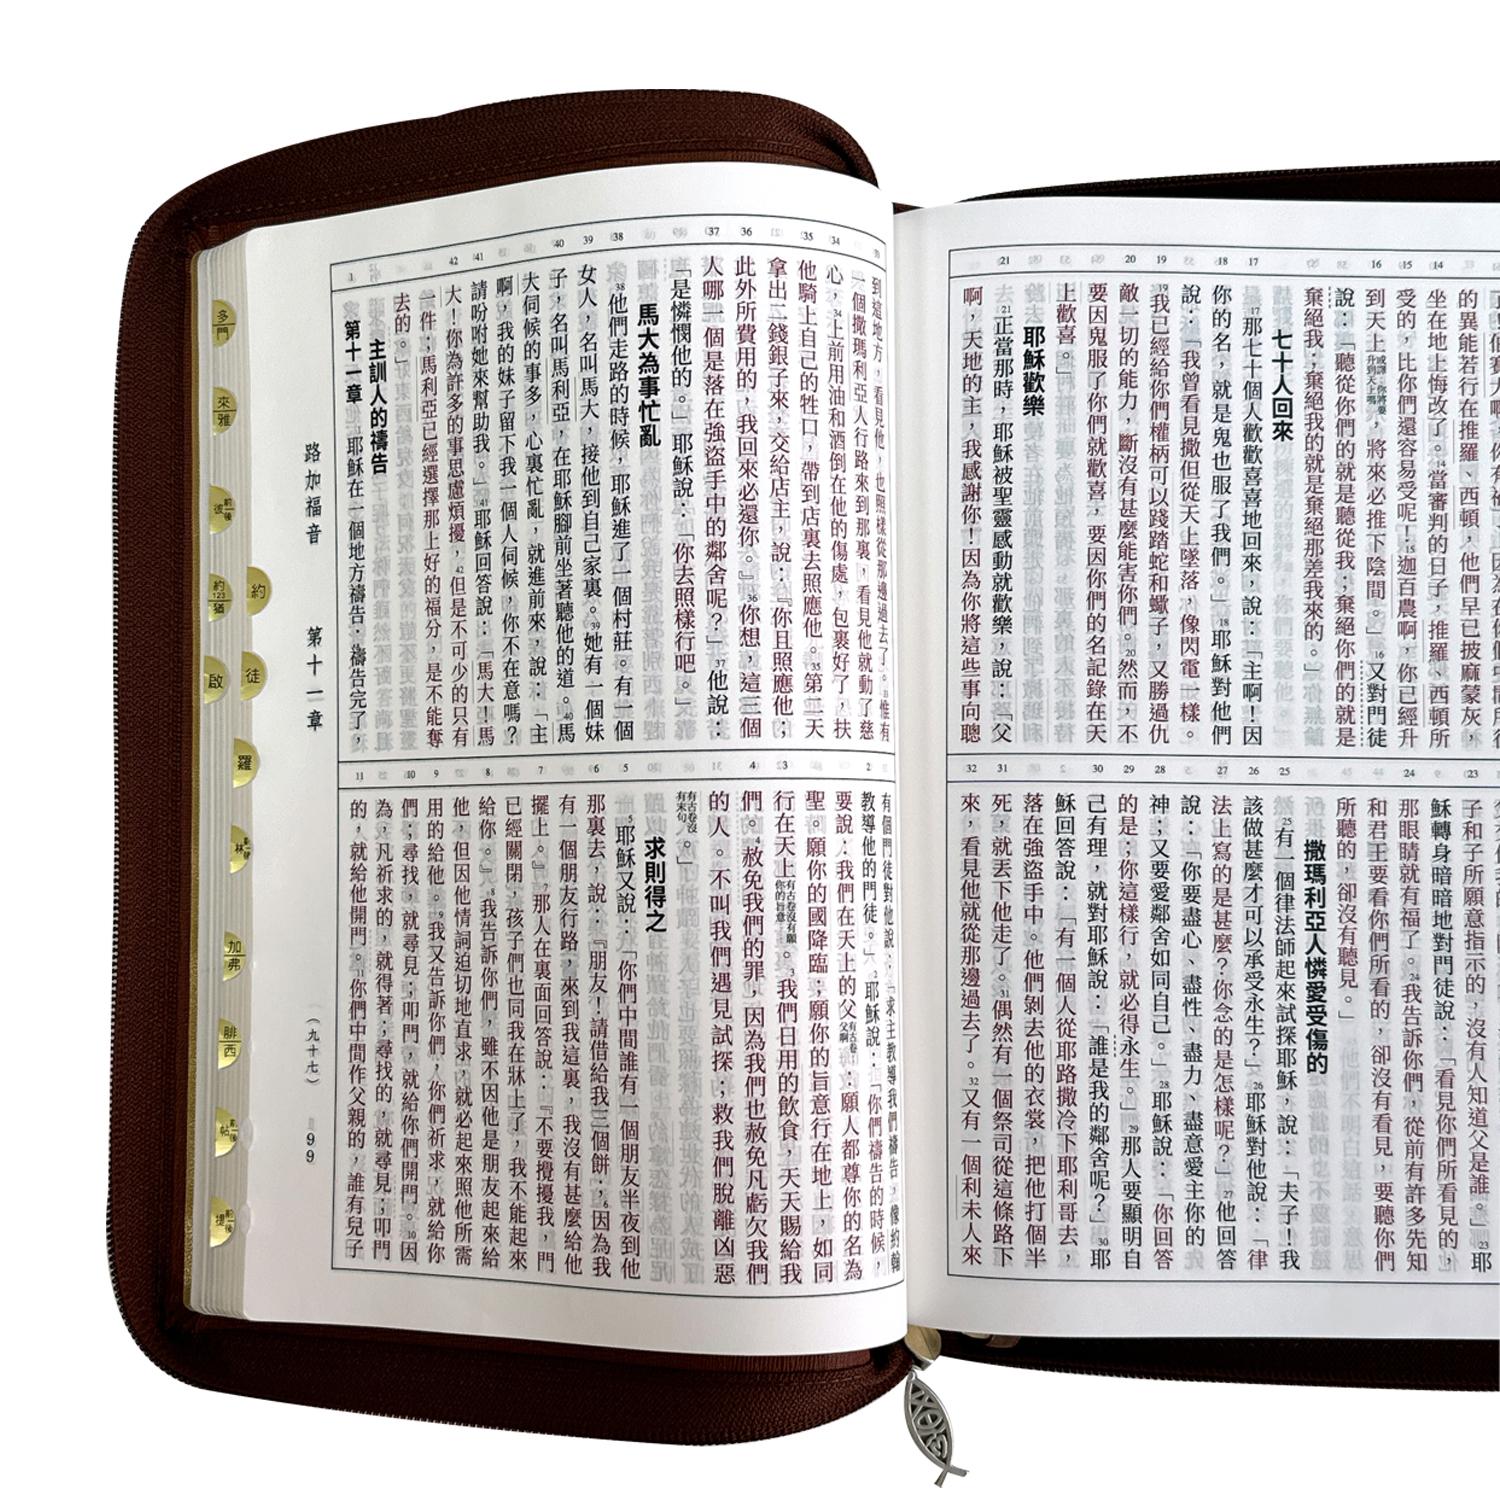 14 15 16 17 18 19 20 21
的異能若行在推羅、西頓,他們早已披麻蒙灰,
坐在地上悔改了。14當審判的日子,推羅、西頓所
受的,比你們還容易受呢!15迦百農啊,你已經升
到天上或譯:你將要升到天上嗎,將來必推下陰間。」16又對門徒
說:「聽從你們的就是聽從我;棄絕你們的就是
棄絕我;棄絕我的就是棄絕那差我來的。」
七十人回來
17那七十個人歡歡喜喜地回來,說:「主啊!因
你的名,就是鬼也服了我們。」18耶穌對他們
說:「我曾看見撒但從天上墜落,像閃電一樣。
19我已經給你們權柄可以踐踏蛇和蠍子,又勝過仇
敵一切的能力,斷沒有甚麼能害你們。20然而,不
要因鬼服了你們就歡喜,要因你們的名記錄在天
上歡喜。」
耶穌歡樂
21正當那時,耶穌被聖靈感動就歡樂,說:「父
啊,天地的主,我感謝你!因為你將這些事向聰
23 24 25 26 27 28 29 30 31 32
子和子所願意指示的,沒有人知道父是誰。」23耶
穌轉身暗暗地對門徒說:「看見你們所看見的,
那眼睛就有福了。24我告訴你們,從前有許多先知
和君王要看你們所看的,卻沒有看見,要聽你們
所聽的,卻沒有聽見。」
撒瑪利亞人憐愛受傷的
25有一個律法師起來試探耶穌,說:「夫子!我
該做甚麼才可以承受永生?」26耶穌對他說:「律
法上寫的是甚麼?你念的是怎樣呢?」27他回答
說:「你要盡心、盡性、盡力、盡意愛主你的
神;又要愛鄰舍如同自己。」28耶穌說:「你回答
的是;你這樣行,就必得永生。」29那人要顯明自
己有理,就對耶穌說:「誰是我的鄰舍呢?」30耶
穌回答說:「有一個人從耶路撒冷下耶利哥去,
落在強盜手中。他們剝去他的衣裳,把他打個半
死,就丟下他走了。31偶然有一個祭司從這條路下
來,看見他就從那邊過去了。32又有一個利未人來
33 34 35 36 37 38 39 40 41 42 1
到這地方,看見他,也照樣從那邊過去了。33惟有
一個撒瑪利亞人行路來到那裏,看見他就動了慈
心,34上前用油和酒倒在他的傷處,包裹好了,扶
他騎上自己的牲口,帶到店裏去照應他。35第二天
拿出二錢銀子來,交給店主,說:『你且照應他;
此外所費用的,我回來必還你。』36你想,這三個
人哪一個是落在強盜手中的鄰舍呢?」37他說:
「是憐憫他的。」耶穌說:「你去照樣行吧。」
馬大為事忙亂
38他們走路的時候,耶穌進了一個村莊。有一個
女人,名叫馬大,接他到自己家裏。39她有一個妹
子,名叫馬利亞,在耶穌腳前坐著聽他的道。40馬
大伺候的事多,心裏忙亂,就進前來,說:「主
啊,我的妹子留下我一個人伺候,你不在意嗎?
請吩咐她來幫助我。」41耶穌回答說:「馬大!馬
大!你為許多的事思慮煩擾,42但是不可少的只有
一件;馬利亞已經選擇那上好的福分,是不能奪
去的。」
主訓人的禱告
第十一章 1耶穌在一個地方禱告。禱告完了,
2 3 4 5 6 7 8 9 10 11
有個門徒對他說:「求主教導我們禱告,像約翰
教導他的門徒。」2耶穌說:「你們禱告的時候,
要說:我們在天上的父有古卷:父啊:願人都尊你的名為
聖。願你的國降臨;願你的旨意行在地上,如同
行在天上有古卷沒有願你的旨意。3我們日用的飲食,天天賜給我
們。4赦免我們的罪,因為我們也赦免凡虧欠我們
的人。不叫我們遇見試探;救我們脫離凶惡
有古卷沒有末句。」
求則得之
5耶穌又說:「你們中間誰有一個朋友半夜到他
那裏去,說:『朋友!請借給我三個餅;6因為我
有一個朋友行路,來到我這裏,我沒有甚麼給他
擺上。』7那人在裏面回答說:『不要攪擾我,門
已經關閉,孩子們也同我在牀上了,我不能起來
給你。』8我告訴你們,雖不因他是朋友起來給
他,但因他情詞迫切地直求,就必起來照他所需
用的給他。9我又告訴你們,你們祈求,就給你
們;尋找,就尋見;叩門,就給你們開門。10因
為,凡祈求的,就得著;尋找的,就尋見;叩門
的,就給他開門。11你們中間作父親的,誰有兒子
路加福音 第十一章 (九十七) 99
約
徒
羅
加
弗
腓
西
多
門
來
雅
彼 前後
約 123 猶
啟